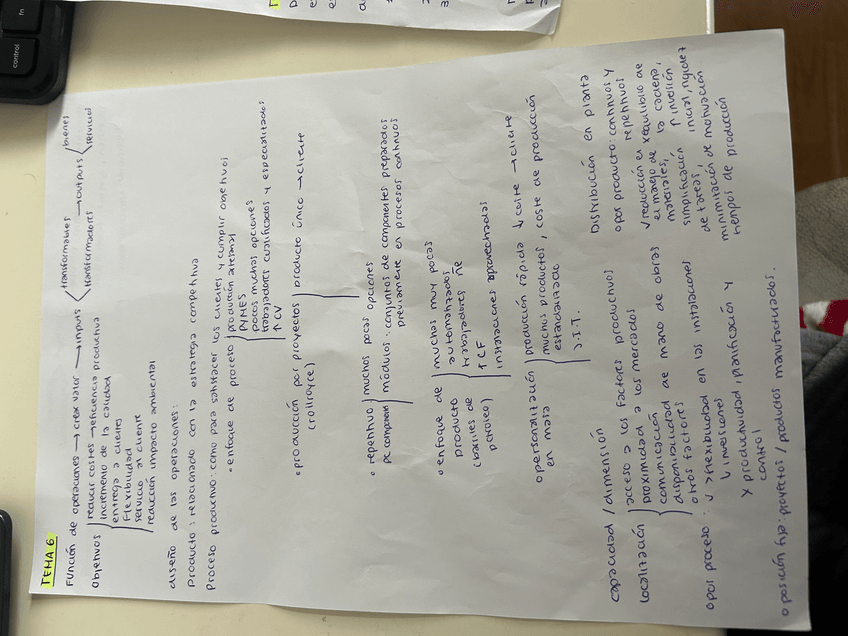 TEMA 6
Función de operaciones → crear valor → inputs transformables → outputs bienes
transformadores servicios
Objetivos reducir costes → eficiencia productiva
incremento de la calidad
entrega a clientes
Flexibilidad
servicio al cliente
reducción impacto ambiental
diseño de las operaciones:
Producto: relacionado con la estrategia competitiva
Proceso productivo: como para satisfacer los clientes y cumplir objetivos
• enfoque de proceso producción artesanal
PYMES
pocos muchas opciones
trabajadores cualificados y especializados
↑ CV
• producción por proyectos producto único → cliente
(rollroyce)
• repetitivo muchos pocas opciones
módulos: conjuntos de componentes preparados
previamente en procesos continuos
• enfoque de muchas muy pocas
producto automatizados
(barriles de trabajadores ñe
petróleo) ↑ CF
instalaciones aprovechadas
o personalización producción rápida ↓ coste → cliente
en masa muchos productos, coste de producción
estandarizado
J.I.T.
capacidad / dimensión
localización acceso a los factores productivos
proximidad a los mercados
comunicación
disponibilidad de mano de obras
otros factores
Distribución en planta
o por producto: continuos y
repetitivos
✓ reducción en
el manejo de
materiales,
simplificación
de tareas,
minimización de
tiempos de producción
x equilibrio de
la cadena,
↑ inversión
inicial, rigidez
motivación
o por proceso: ✓ > flexibilidad en las instalaciones
↓ inversiones
x productividad, planificación y
control
o posición fija: proyectos / productos manufacturados.
control
fn